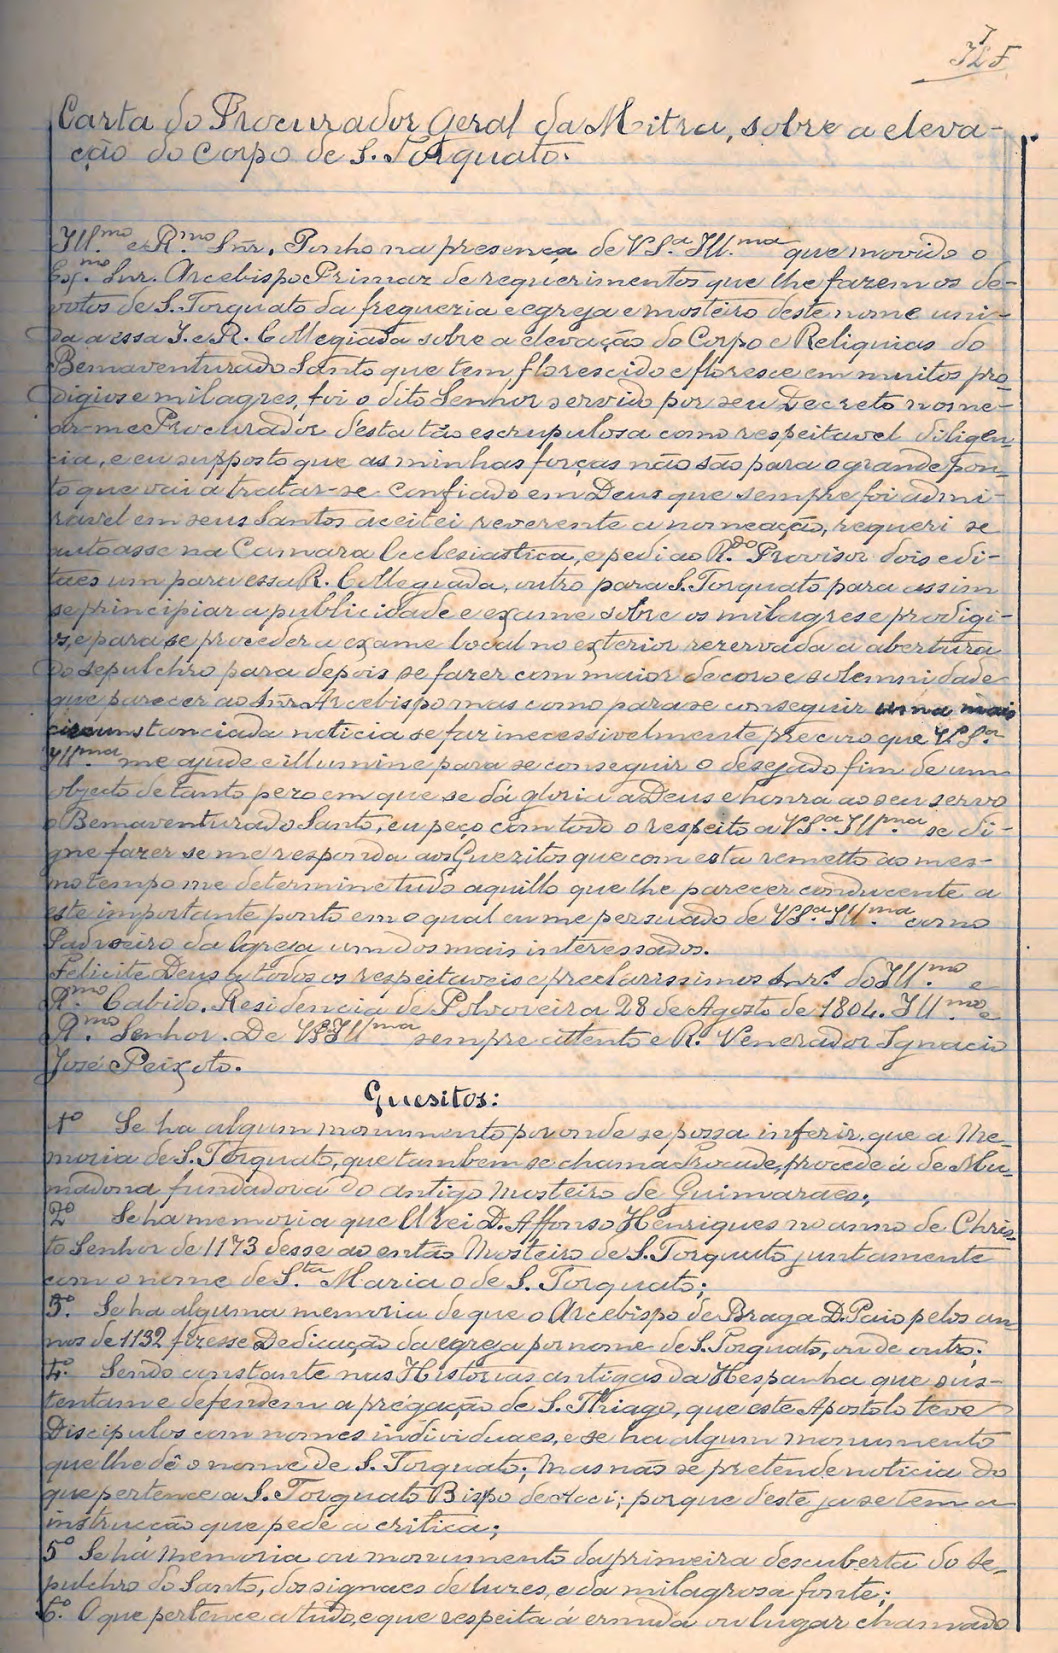 7
Carta do Procurador Geral da Mitra, sobre a eleva-
ção do Corpo de S. Torquato.
Ill.mo e R.mo Snr. Ponho na presença de VS.a Ill.ma que movido o
Ex.mo Snr. Arcebispo Primaz de requerimentos que lhe fazem os de-
votos de S. Torquato da freguezia e egreja e mosteiro deste nome uni-
da a essa I. e R. Collegiada sobre a elevação do Corpo e Reliquias do
Bemaventurado Santo que tem florescido e floresce em muitos pro-
digios e milagres, foi o dito Senhor servido por seu Decreto nome-
ar-me Procurador d'esta tão escrupulosa como respeitavel diligen-
cia, e eu supposto que as minhas forças não são para o grande pon-
to que vai a tratar-se confiado em Deus que sempre foi admi-
ravel em seus Santos aceitei reverente a nomeação, requeri se
autoasse na Camara Ecclesiastica, e pedi ao R.do Provisor dois edi-
taes um para essa R. Collegiada, outro para S. Torquato para assim
se principiar a publicidade e exame sobre os milagres e prodigi-
os, e para se proceder a exame local no exterior rezervada a abertura
do sepulchro para depois se fazer com maior decoro e solemnidade
que parecer ao Snr Arcebispo mas como para se conseguir uma mais
circumstanciada noticia se faz inecessivelmente precizo que VS.a
Ill.ma me ajude e illumine para se conseguir o desejado fim de um
objecto de tanto pezo em que se dá gloria a Deus e honra ao seu servo
o Bemaventurado Santo, eu peço com todo o respeito a VS.a Ill.ma se di-
gne fazer se me responda aos Quezitos que com esta remetto ao mes-
mo tempo me determine tudo aquillo que lhe parecer conducente a
este importante ponto em o qual eu me persuado de VS.a Ill.ma como
Padroeiro da Igreja um dos mais interessados.
Felicite Deus a todos os respeitaveis e preclarissimos Snr.s do Ill.mo e
R.mo Cabido. Residencia de Polvoreira 28 de Agosto de 1804. Ill.mo e
R.mo Senhor. De VS Ill.ma sempre attento e R. Venerador Ignacio
José Peixoto.
Quesitos:
1º Se ha algum monumento por onde se possa inferir que a Me-
moria de S. Torquato, que tambem se chama Procade, precede á de Mu-
madona fundadora do antigo Mosteiro de Guimaraes;
2º Se ha memoria que El rei D. Affonso Henriques no anno de Chris-
to Senhor de 1173 desse ao então Mosteiro de S. Torquato juntamente
com o nome de S.ta Maria o de S. Torquato;
3º. Se ha alguma memoria de que o Arcebispo de Braga D. Paio pelos an-
nos de 1132 fizesse Dedicação da egreja por nome de S. Torquato, ou de outro;
4º. Sendo constante nas Historias antigas da Hespanha que sus-
tentam e defendem a prégação de S. Thiago, que este Apostolo teve
Discipulos com nomes individuaes, e se ha algum monumento
que lhe dê o nome de S. Torquato; mas não se pretende noticia do
que pertence a S. Torquato Bispo de Acci; porque deste ja se tem a
instrucção que pede a critica;
5º Se há memoria ou monumento da primeira descuberta do se-
pulchro do Santo, dos signaes de luzes, e da milagrosa fonte;
6º. O que pertence a tudo, e que respeita á ermida ou lugar chamado